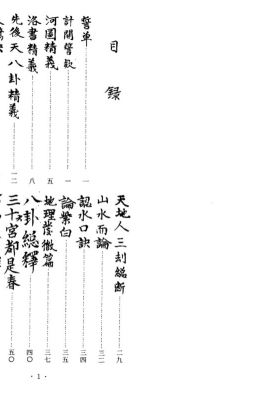 目錄
誓章…一
計開警敬…一
河圖精義…五
洛書精義…八
先後天八卦精義…一二
天地人三刦總斷…二九
山水而論…三二
認水口訣…三四
論紫白…三五
地理隱微篇…三七
八卦總釋…四〇
三十六宮都是春…五〇
·1·